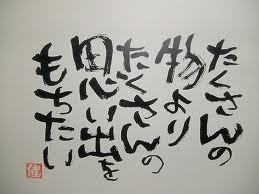 たくさんの
物より
たくさんの
思い出を
もちたい
健